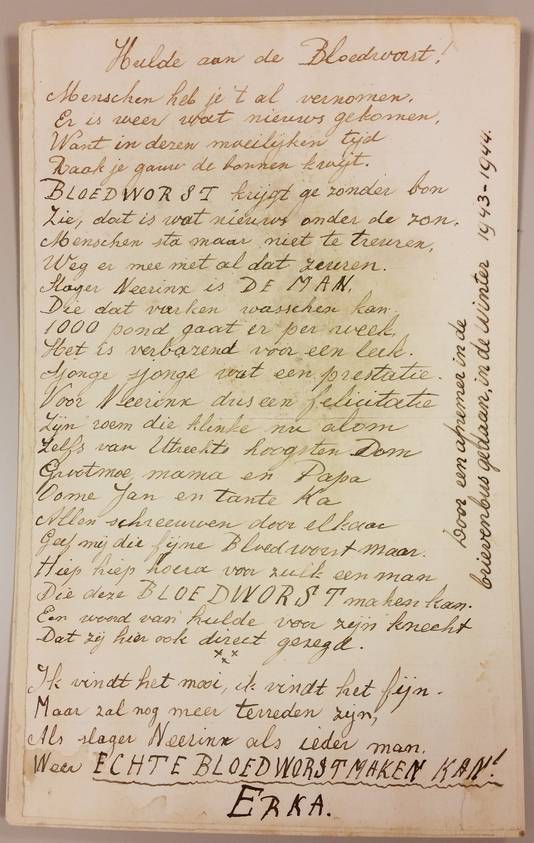 Hulde aan de Bloedworst!
Menschen heb je 't al vernomen.
Er is weer wat nieuws gekomen.
Want in dezen moeilijken tijd
Raak je gauw de bonnen kwijt.
BLOEDWORST krijgt ge zonder bon
Zie, dat is wat nieuws onder de zon.
Menschen sta maar niet te treuren,
Weg er mee met al dat zeuren.
Slager Neerinx is DE MAN.
Die dat varken wasschen kan.
1000 pond gaat er per week,
Het is verbazend voor een leek.
Sjonge sjonge wat een prestatie.
Voor Neerinx dus een felicitatie
Zijn roem die klinke nu alom
Zelfs van Utrechts hoogsten Dom
Grootmoe, mama en Papa
Oome Jan en tante Ka
Allen schreeuwen door elkaar
Geef mij die fijne Bloedworst maar.
Hiep hiep hoera voor zulk een man
Die deze BLOEDWORST maken kan.
Een woord van hulde voor zijn knecht
Dat zij hier ook direct gezegd.
Ik vindt het mooi, ik vindt het fijn.
Maar zal nog meer terreden zijn,
Als slager Neerinx als ieder man.
Weer ECHTE BLOEDWORST MAKEN KAN!
ERKA.
Door een afnemer in de
brievenbus gedaan, in de Winter 1943-1944.